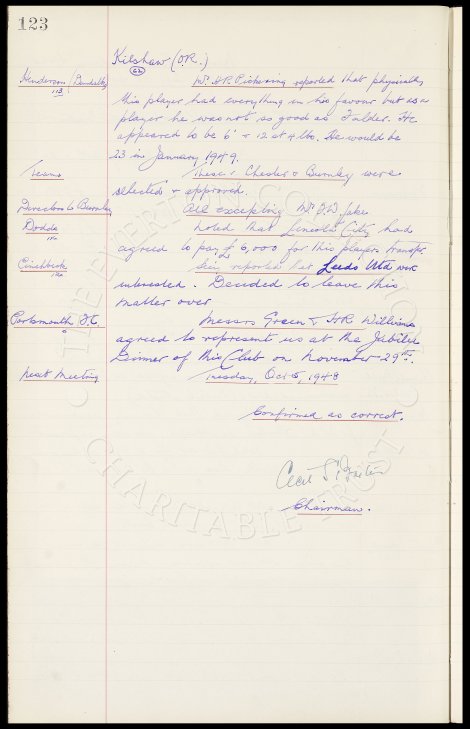 123
Kilshaw (O.R.)
62
Henderson (Dundalk) Mr. H.R. Pickering reported that physically
113
this player had everything in his favour but as a
player he was not so good as Falder. He
appeared to be 6' & 12 st 4 lbs. He would be
23 in January 1949.
Teams These v Chester & Burnley were
selected & approved.
Directors to Burnley All excepting Mr. J.W.
Dodds Noted that Lincoln City had
agreed to pay £6,000 for this players transfer
reported that Leeds Utd were
interested. Decided to leave this
matter over
Portsmouth F.C. Messrs Green & H.R. Williams
agreed to represent us at the Jubilee
Dinner of this Club on November 29th.
Next Meeting Tuesday, Oct 5, 1948
Confirmed as correct.
Cecil S.
Chairman.
THE EVERTON CO
CHARITABLE TRUST